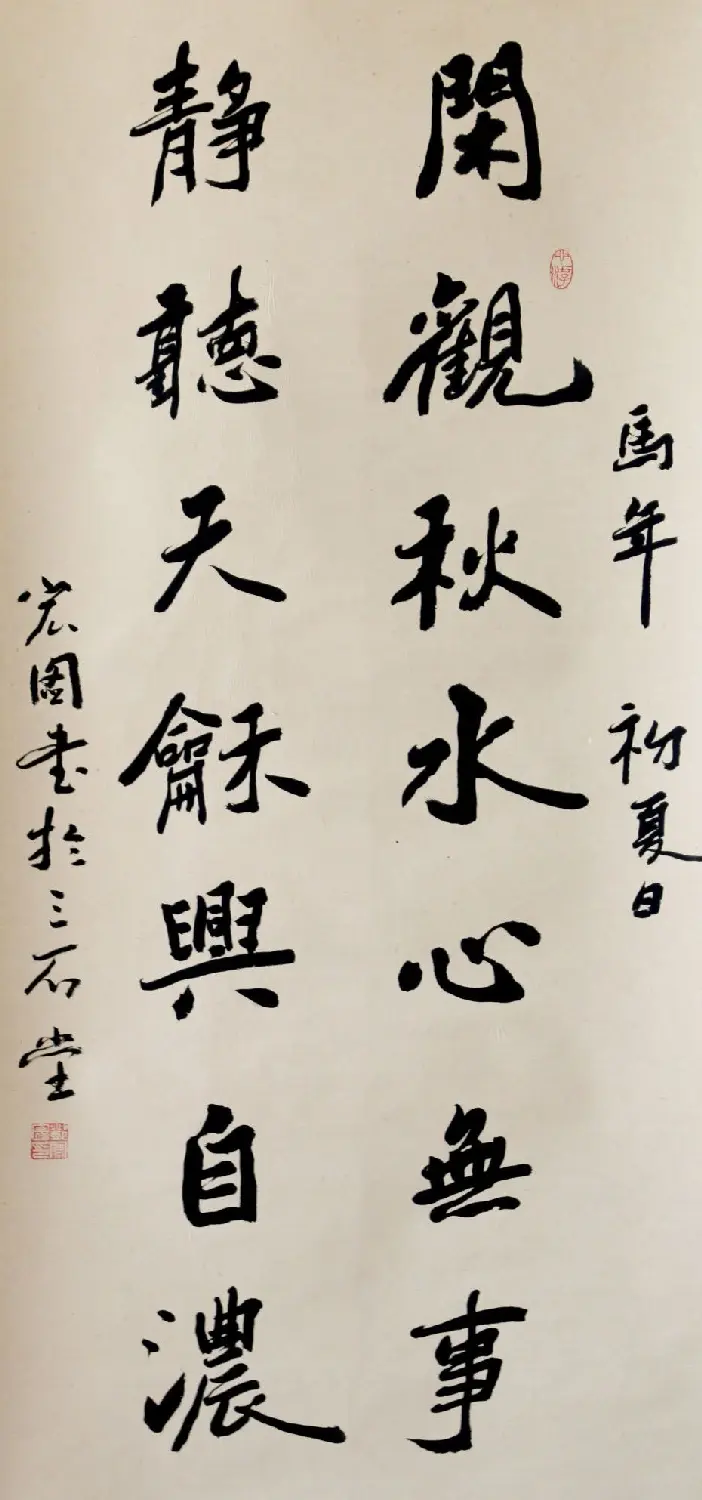 馬年初夏日
閑觀秋水心無事
靜聽天龢興自濃
宏圖書於三石堂